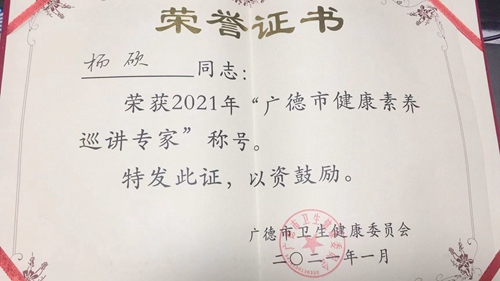 荣誉证书
杨硕同志：
荣获2021年“广德市健康素养
巡讲专家”称号。
特发此证，以资鼓励。
广德市卫生健康委员会
二〇二一年一月